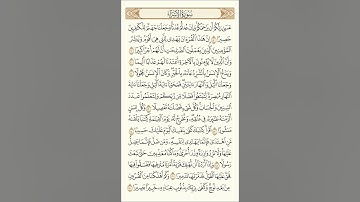 سُورَةُ الإِسْرَاءِ
عَسَىٰ رَبُّكُمْ أَن يَرْحَمَكُمْ وَإِنْ عُدتُّمْ عُدْنَا وَجَعَلْنَا جَهَنَّمَ لِلْكَٰفِرِينَ
حَصِيرًا ٨ إِنَّ هَٰذَا ٱلْقُرْءَانَ يَهْدِى لِلَّتِى هِىَ أَقْوَمُ وَيُبَشِّرُ
ٱلْمُؤْمِنِينَ ٱلَّذِينَ يَعْمَلُونَ ٱلصَّٰلِحَٰتِ أَنَّ لَهُمْ أَجْرًا كَبِيرًا ٩
وَأَنَّ ٱلَّذِينَ لَا يُؤْمِنُونَ بِٱلْءَاخِرَةِ أَعْتَدْنَا لَهُمْ عَذَابًا أَلِيمًا ١٠
وَيَدْعُ ٱلْإِنسَٰنُ بِٱلشَّرِّ دُعَآءَهُۥ بِٱلْخَيْرِ وَكَانَ ٱلْإِنسَٰنُ عَجُولًا ١١
وَجَعَلْنَا ٱلَّيْلَ وَٱلنَّهَارَ ءَايَتَيْنِ فَمَحَوْنَآ ءَايَةَ ٱلَّيْلِ وَجَعَلْنَآ ءَايَةَ
ٱلنَّهَارِ مُبْصِرَةً لِّتَبْتَغُوا۟ فَضْلًا مِّن رَّبِّكُمْ وَلِتَعْلَمُوا۟ عَدَدَ
ٱلسِّنِينَ وَٱلْحِسَابَ وَكُلَّ شَىْءٍ فَصَّلْنَٰهُ تَفْصِيلًا ١٢ وَكُلَّ إِنسَٰنٍ
أَلْزَمْنَٰهُ طَٰٓئِرَهُۥ فِى عُنُقِهِۦ وَنُخْرِجُ لَهُۥ يَوْمَ ٱلْقِيَٰمَةِ كِتَٰبًا يَلْقَىٰهُ
مَنشُورًا ١٣ ٱقْرَأْ كِتَٰبَكَ كَفَىٰ بِنَفْسِكَ ٱلْيَوْمَ عَلَيْكَ حَسِيبًا ١٤
مَّنِ ٱهْتَدَىٰ فَإِنَّمَا يَهْتَدِى لِنَفْسِهِۦ وَمَن ضَلَّ فَإِنَّمَا يَضِلُّ
عَلَيْهَا وَلَا تَزِرُ وَازِرَةٌ وِزْرَ أُخْرَىٰ وَمَا كُنَّا مُعَذِّبِينَ حَتَّىٰ نَبْعَثَ
رَسُولًا ١٥ وَإِذَآ أَرَدْنَآ أَن نُّهْلِكَ قَرْيَةً أَمَرْنَا مُتْرَفِيهَا فَفَسَقُوا۟ فِيهَا فَحَقَّ
عَلَيْهَا ٱلْقَوْلُ فَدَمَّرْنَٰهَا تَدْمِيرًا ١٦ وَكَمْ أَهْلَكْنَا مِنَ ٱلْقُرُونِ
مِنۢ بَعْدِ نُوحٍ وَكَفَىٰ بِرَبِّكَ بِذُنُوبِ عِبَادِهِۦ خَبِيرًۢا بَصِيرًا ١٧